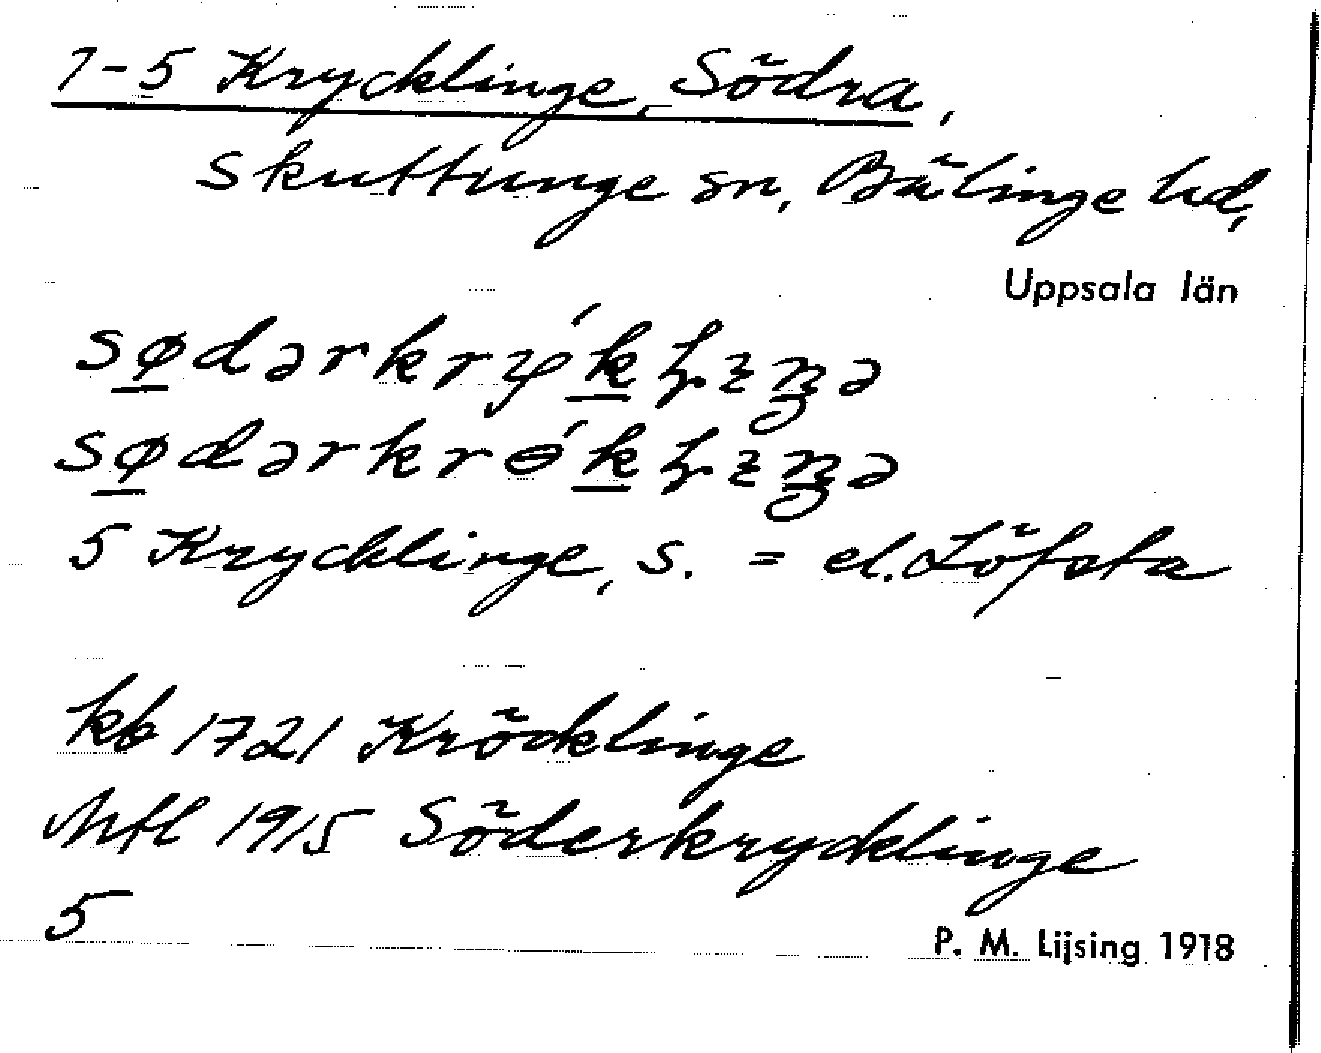 1-5 Krycklinge, Södra,
Skuttunge sn, Bälinge hd,
Uppsala län
5 Krycklinge, S. = el. Löfsta
kb 1721 Kröcklinge
Mtl 1915 Söderkrycklinge
5
P. M. Lijsing 1918